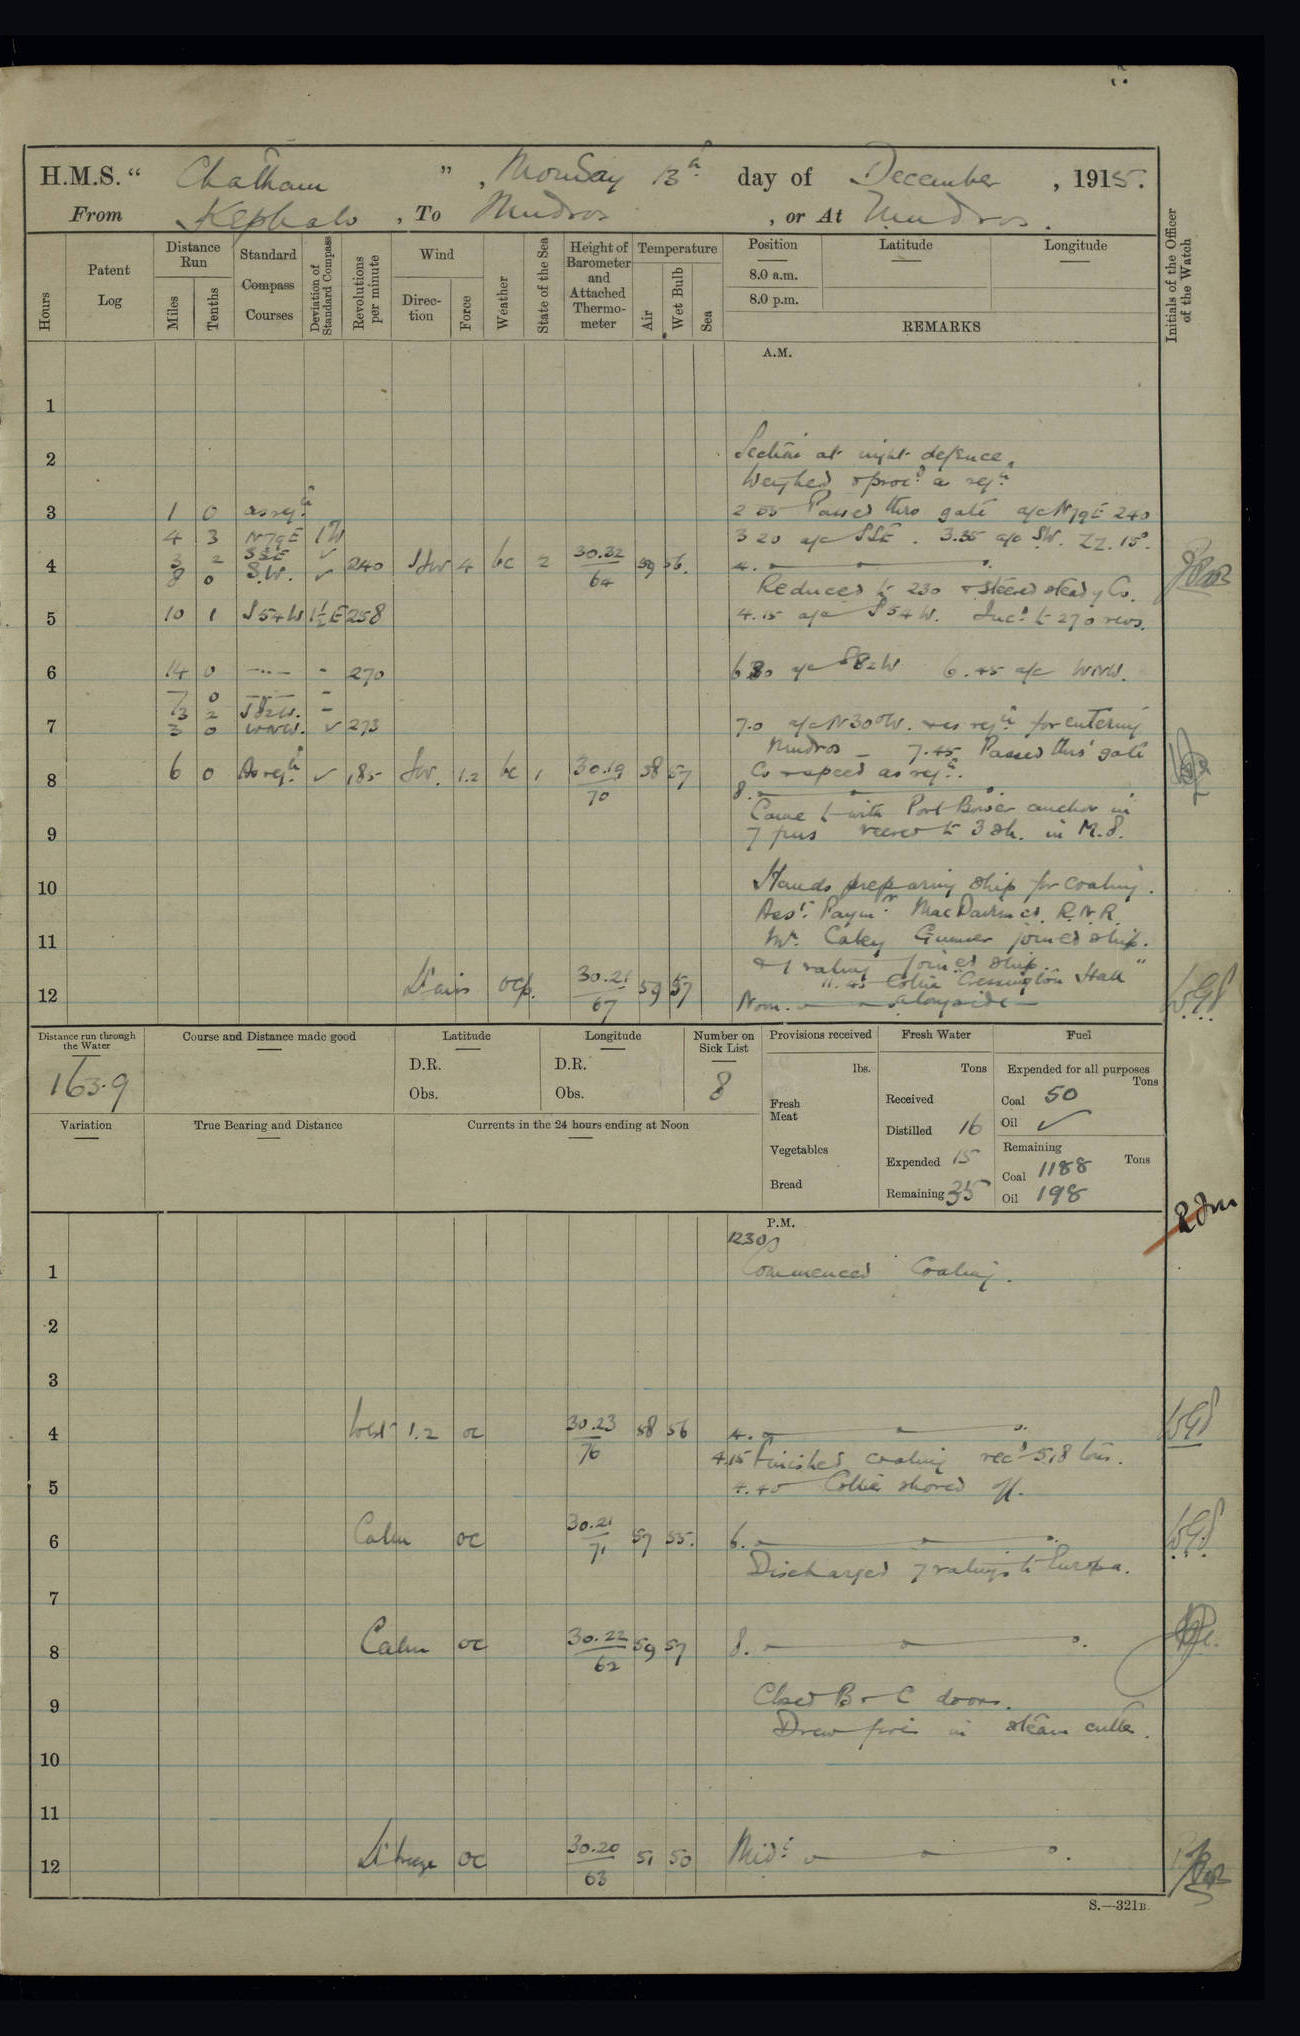 H.M.S. “ Chatham ” , Monday 13th day of December , 1915.
From Kephalo , To Mudros , or At Mudros.
Hours
Patent Log
Distance Run
Miles
Tenths
Standard Compass Courses
Deviation of Standard Compass
Revolutions per minute
Wind
Direction
Force
Weather
State of the Sea
Height of Barometer and Attached Thermometer
Temperature
Air
Wet Bulb
Sea
Position
Latitude
Longitude
8.0 a.m.
8.0 p.m.
REMARKS
Initials of the Officer of the Watch
A.M.
1
2 Section at night defence.
Weighed & procd as reqte
3 1 0 as reqte 2 55 Passed thro gate a/c N79E 240
4 3 N79E 1W 3 20 a/c SSE . 3.35 a/c SW. ZZ. 15°.
3 2 SSE ✓
4 8 0 S.W. ✓ 240 SSW 4 bc 2 30.32 64 59 56. 4.
Reduced to 230 & steered steady Co.
5 10 1 S54W 1½E 258 4.15 a/c S54W. Incd to 270 revs.
6 14 0 - 270 6 30 a/c S82W 6.45 a/c WNW.
7 0 -
3 2 S82W. -
7 3 0 WNW. ✓ 273 7.0 a/c N30W. & as reqte for entering
Mudros — 7.45 Passed thro' gate
8 6 0 As reqte ✓ 185 SW. 1.2 bc 1 30.19 70 58 57 Co & speed as reqte.
8.
Came to with Port Bower anchor in
9 7 fms veered to 3 sh. in M.8.
10 Hands preparing ship for coaling.
Asst. Paymr. R.N.R.
11 Mr. Gunner joined ship.
& 1 rating joined ship.
11.45 Collier "Cressington Hall"
12 Lt airs ocp. 30.21 67 59 57 Noon. alongside
Distance run through the Water
163.9
Course and Distance made good
Latitude
D.R.
Obs.
Longitude
D.R.
Obs.
Number on Sick List
8
Provisions received
lbs.
Fresh Meat
Vegetables
Bread
Fresh Water
Tons
Received
Distilled 16
Expended 15
Remaining 35
Fuel
Expended for all purposes
Tons
Coal 50
Oil ✓
Remaining
Tons
Coal 1188
Oil 198
Variation
True Bearing and Distance
Currents in the 24 hours ending at Noon
P.M.
1230
1 Commenced Coaling.
2
3
4 West 1.2 oc 30.23 76 58 56 4.
4.15 Finished coaling recd 518 tons.
5 4.45 Collier shoved off.
6 Calm oc 30.21 71 57 55. 6.
Discharged 7 ratings to Europa.
7
8 Calm oc 30.22 62 59 57 8.
9 Closed B & C doors.
Drew fires in steam cutter.
10
11
12 Lt breeze oc 30.20 63 51 50 Midt.
S.—321B.